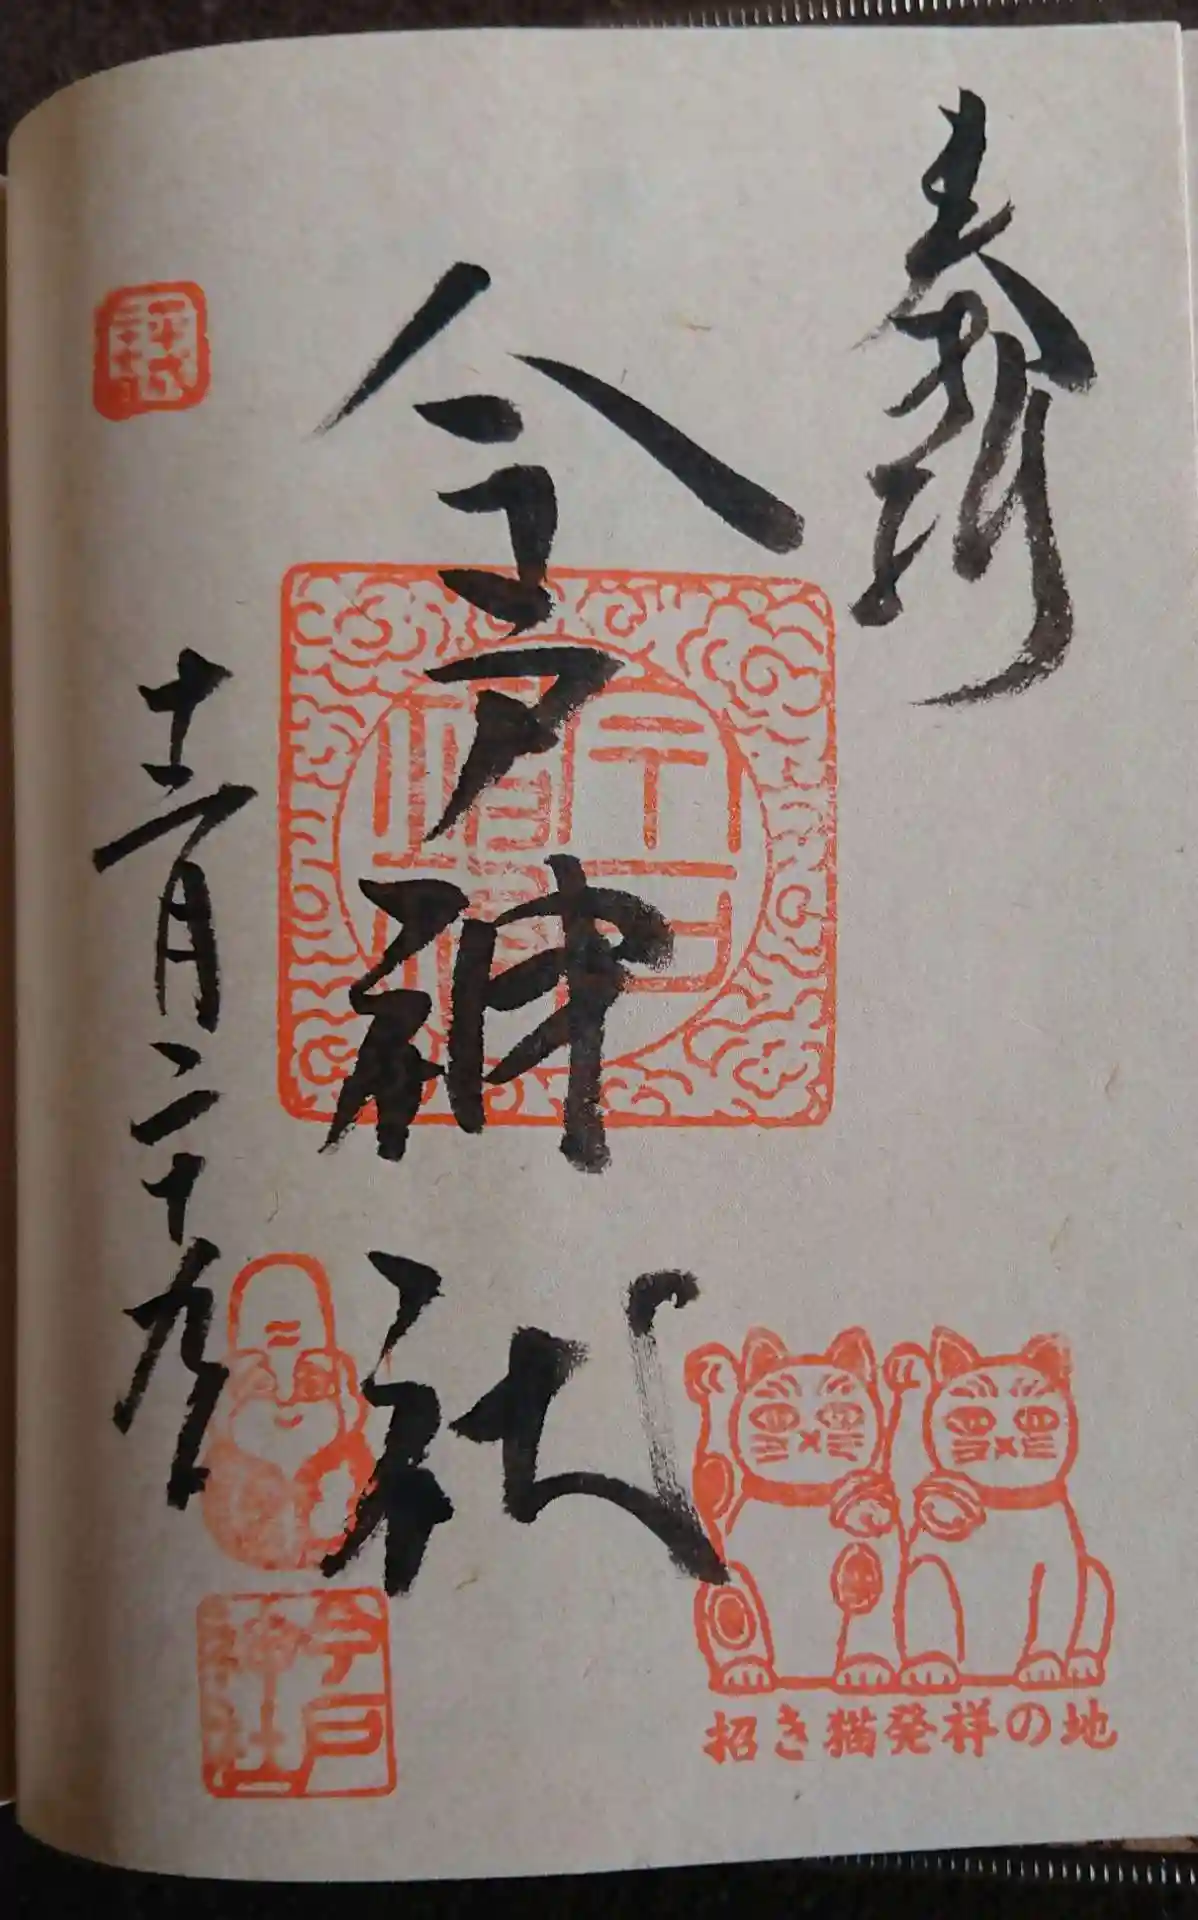 奉拝
今戸神社
十二月二十九日
今戸神社
招き猫発祥の地